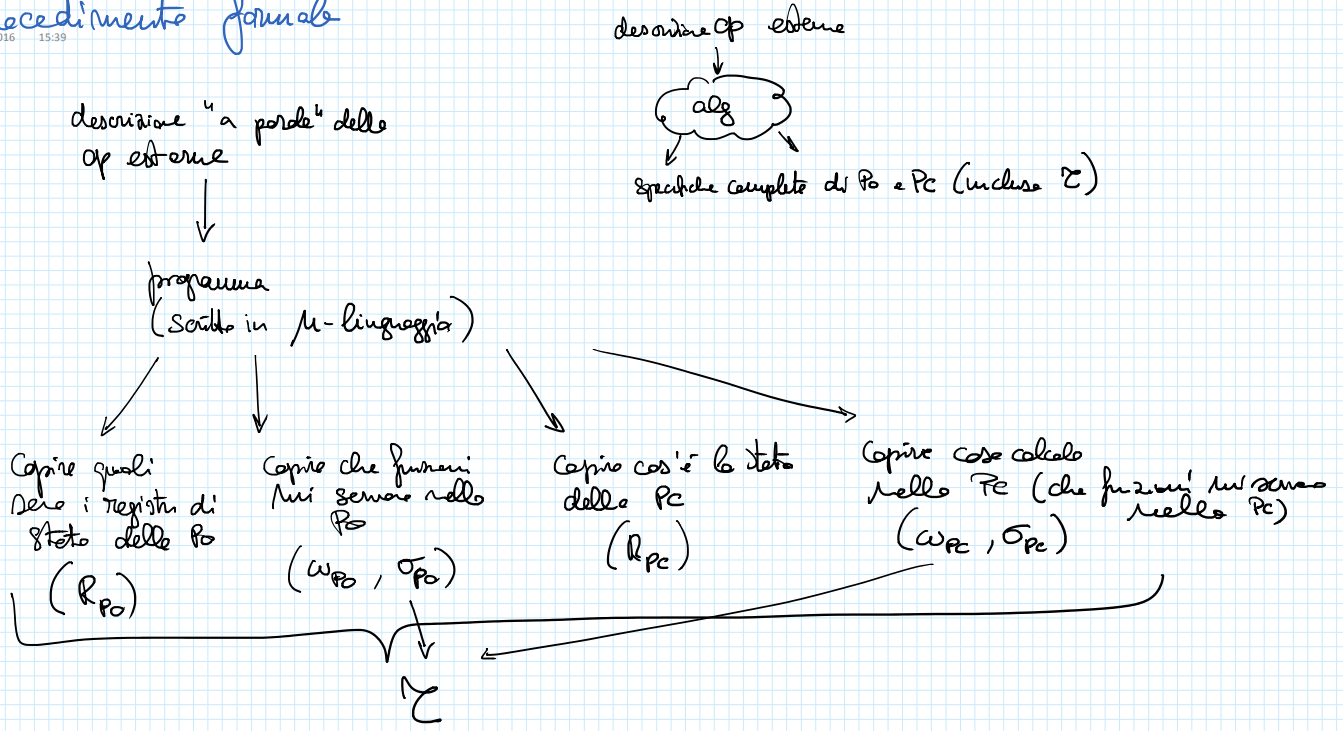 ecedimento formale
016 15:39
descrizione op esterne
alg
specifiche complete di PO e PC (incluso τ)
descrizione "a parole" delle
op esterne
programma
(scritto in μ-linguaggio)
Capire quali
sono i registri di
stato della PO
(R_PO)
Capire che funzioni
mi servono nella
PO
(ω_PO , σ_PO)
Capire cos'è lo stato
della PC
(R_PC)
Capire cosa calcola
nella PC (che funzioni mi servono
nella PC)
(ω_PC , σ_PC)
τ